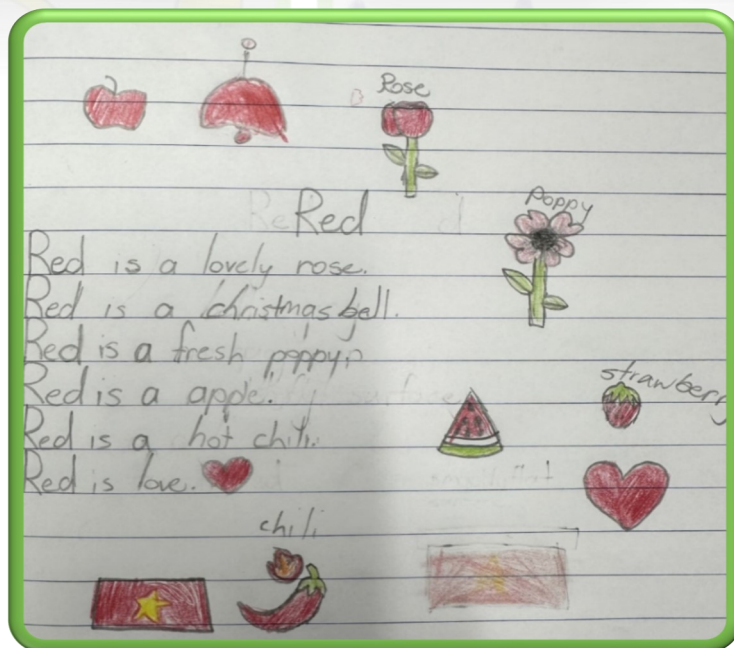 Rose
Red
poppy
Red is a lovely rose.
Red is a christmas bell.
Red is a fresh poppy.
Red is a apple.
strawberry
Red is a hot chili.
Red is love.
chili